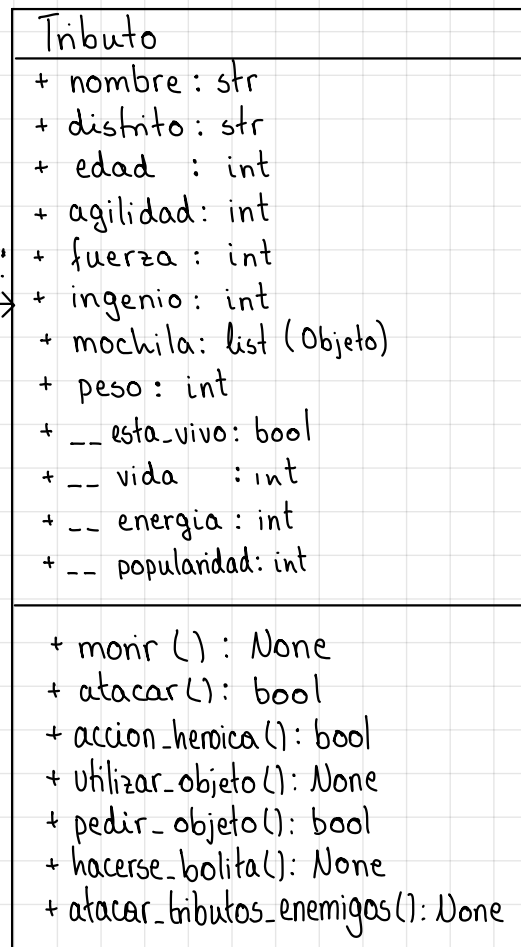 Tributo
+ nombre: str
+ distrito: str
+ edad : int
+ agilidad: int
+ fuerza : int
+ ingenio: int
+ mochila: list (Objeto)
+ peso: int
+ __ esta_vivo: bool
+ __ vida : int
+ __ energia : int
+ __ popularidad: int
+ morir () : None
+ atacar(): bool
+ accion_heroica(): bool
+ utilizar_objeto(): None
+ pedir_objeto(): bool
+ hacerse_bolita(): None
+ atacar_tributos_enemigos(): None